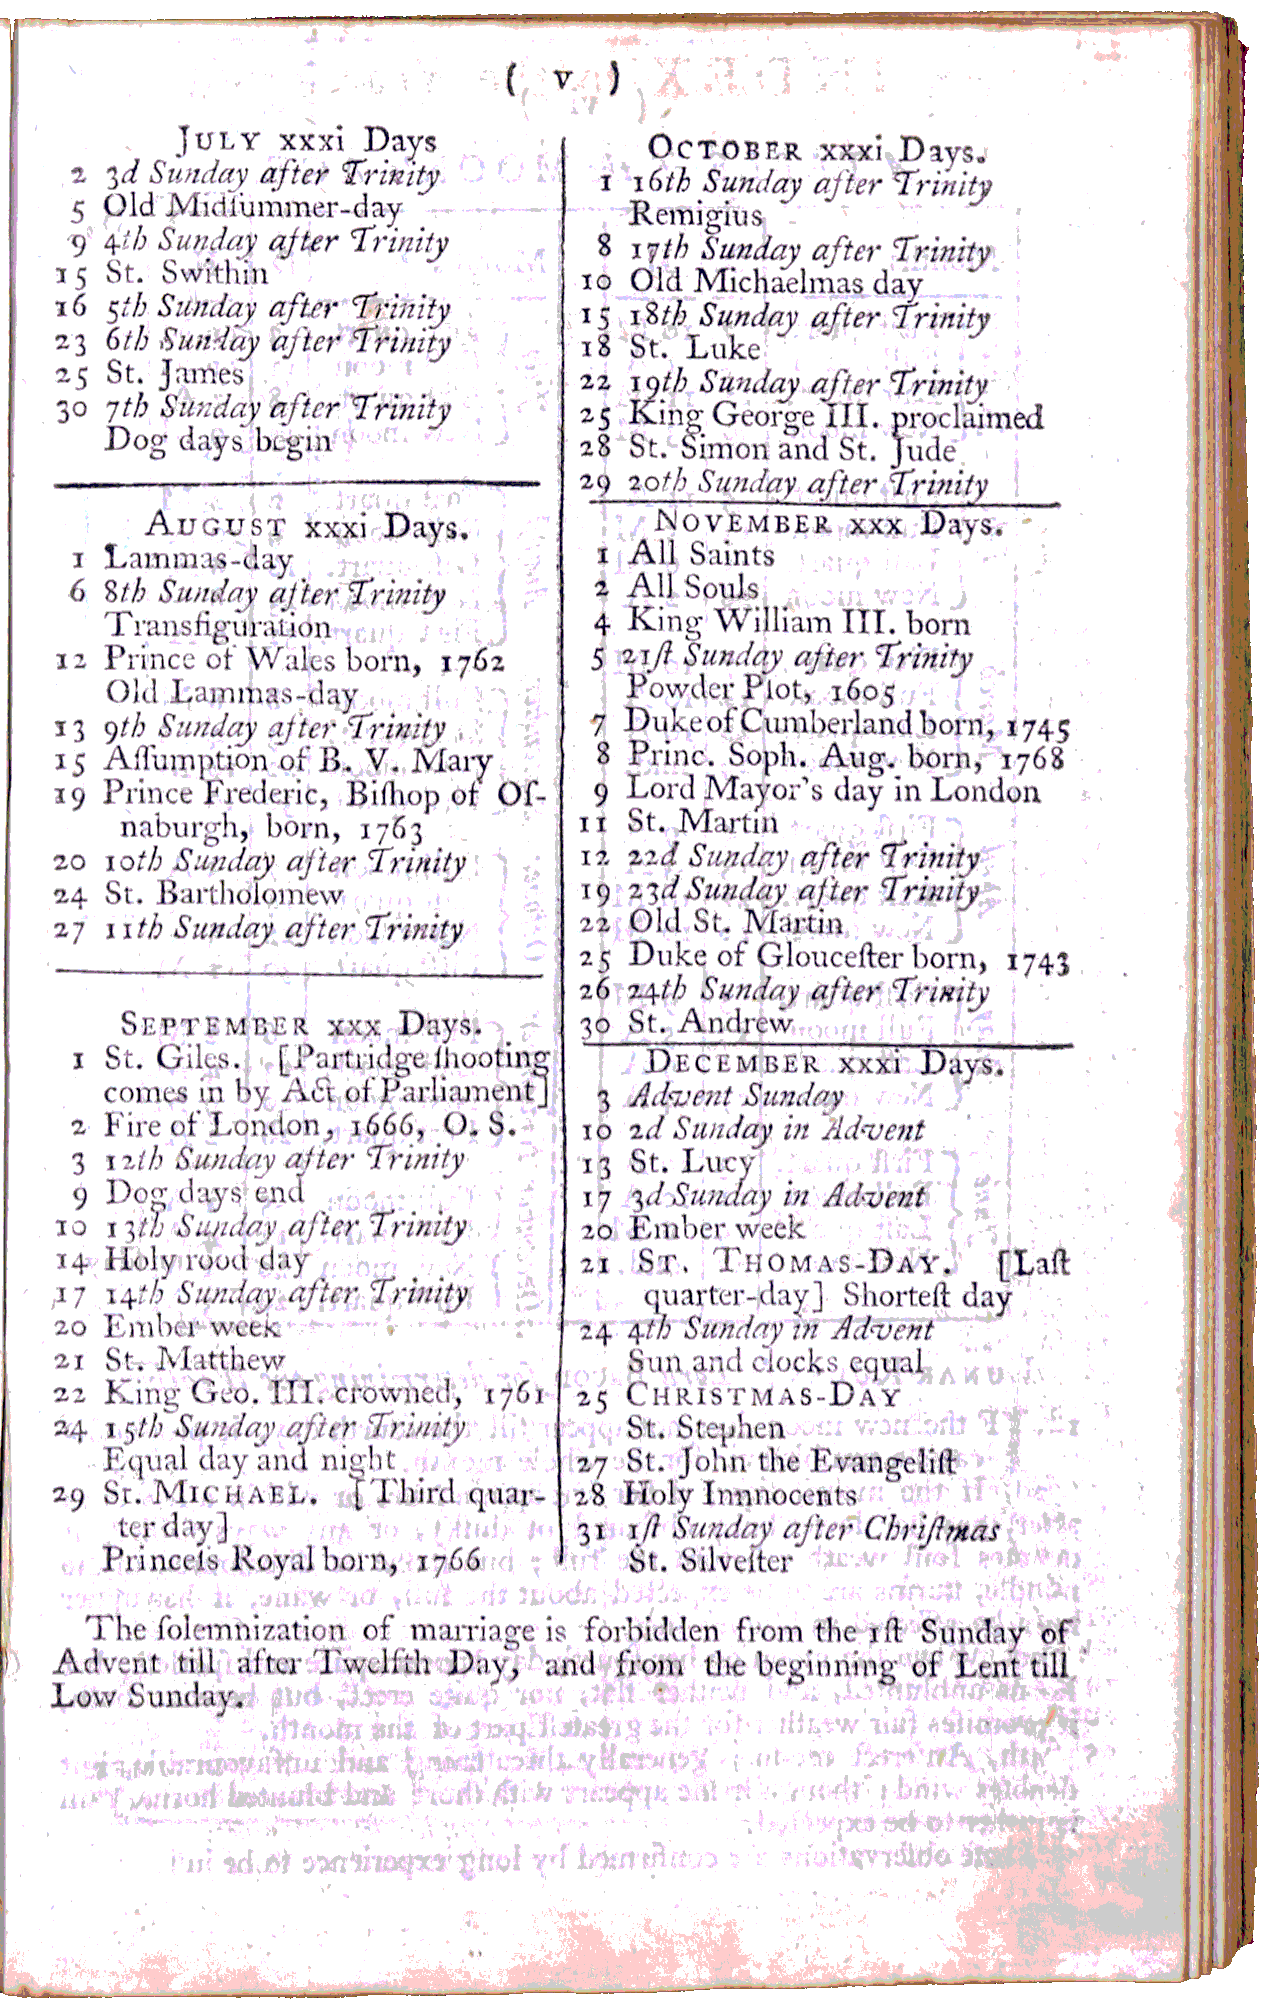 ( v )
JULY xxxi Days
2 3d Sunday after Trinity
5 Old Midſummer-day
9 4th Sunday after Trinity
15 St. Swithin
16 5th Sunday after Trinity
23 6th Sunday after Trinity
25 St. James
30 7th Sunday after Trinity
Dog days begin
AUGUST xxxi Days.
1 Lammas-day
6 8th Sunday after Trinity
Transfiguration
12 Prince of Wales born, 1762
Old Lammas-day
13 9th Sunday after Trinity
15 Aſſumption of B. V. Mary
19 Prince Frederic, Biſhop of Oſ-
naburgh, born, 1763
20 10th Sunday after Trinity
24 St. Bartholomew
27 11th Sunday after Trinity
SEPTEMBER xxx Days.
1 St. Giles. [Partridge ſhooting
comes in by Act of Parliament]
2 Fire of London, 1666, O. S.
3 12th Sunday after Trinity
9 Dog days end
10 13th Sunday after Trinity
14 Holy rood day
17 14th Sunday after Trinity
20 Ember week
21 St. Matthew
22 King Geo. III. crowned, 1761
24 15th Sunday after Trinity
Equal day and night
29 St. MICHAEL. [Third quar-
ter day]
Princeſs Royal born, 1766
OCTOBER xxxi Days.
1 16th Sunday after Trinity
Remigius
8 17th Sunday after Trinity
10 Old Michaelmas day
15 18th Sunday after Trinity
18 St. Luke
22 19th Sunday after Trinity
25 King George III. proclaimed
28 St. Simon and St. Jude
29 20th Sunday after Trinity
NOVEMBER xxx Days.
1 All Saints
2 All Souls
4 King William III. born
5 21ſt Sunday after Trinity
Powder Plot, 1605
7 Duke of Cumberland born, 1745
8 Princ. Soph. Aug. born, 1768
9 Lord Mayor's day in London
11 St. Martin
12 22d Sunday after Trinity
19 23d Sunday after Trinity
22 Old St. Martin
25 Duke of Glouceſter born, 1743
26 24th Sunday after Trinity
30 St. Andrew
DECEMBER xxxi Days.
3 Advent Sunday
10 2d Sunday in Advent
13 St. Lucy
17 3d Sunday in Advent
20 Ember week
21 ST. THOMAS-DAY. [Laſt
quarter-day] Shorteſt day
24 4th Sunday in Advent
Sun and clocks equal
25 CHRISTMAS-DAY
St. Stephen
27 St. John the Evangeliſt
28 Holy Innnocents
31 1ſt Sunday after Chriſtmas
St. Silveſter
The ſolemnization of marriage is forbidden from the 1ſt Sunday of
Advent till after Twelfth Day, and from the beginning of Lent till
Low Sunday.